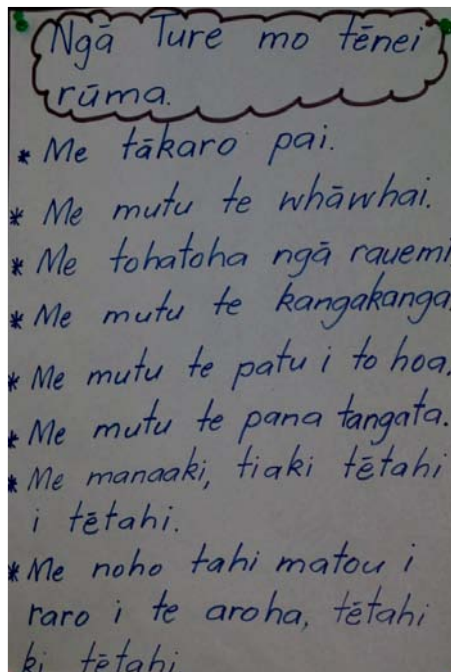 Ngā Ture mo tēnei
rūma.
* Me tākaro pai.
* Me mutu te whāwhai.
* Me tohatoha ngā rauemi
* Me mutu te kangakanga.
* Me mutu te patu i to hoa.
* Me mutu te pana tangata.
* Me manaaki, tiaki tētahi
i tētahi.
* Me noho tahi matou i
raro i te aroha, tētahi
ki tētahi